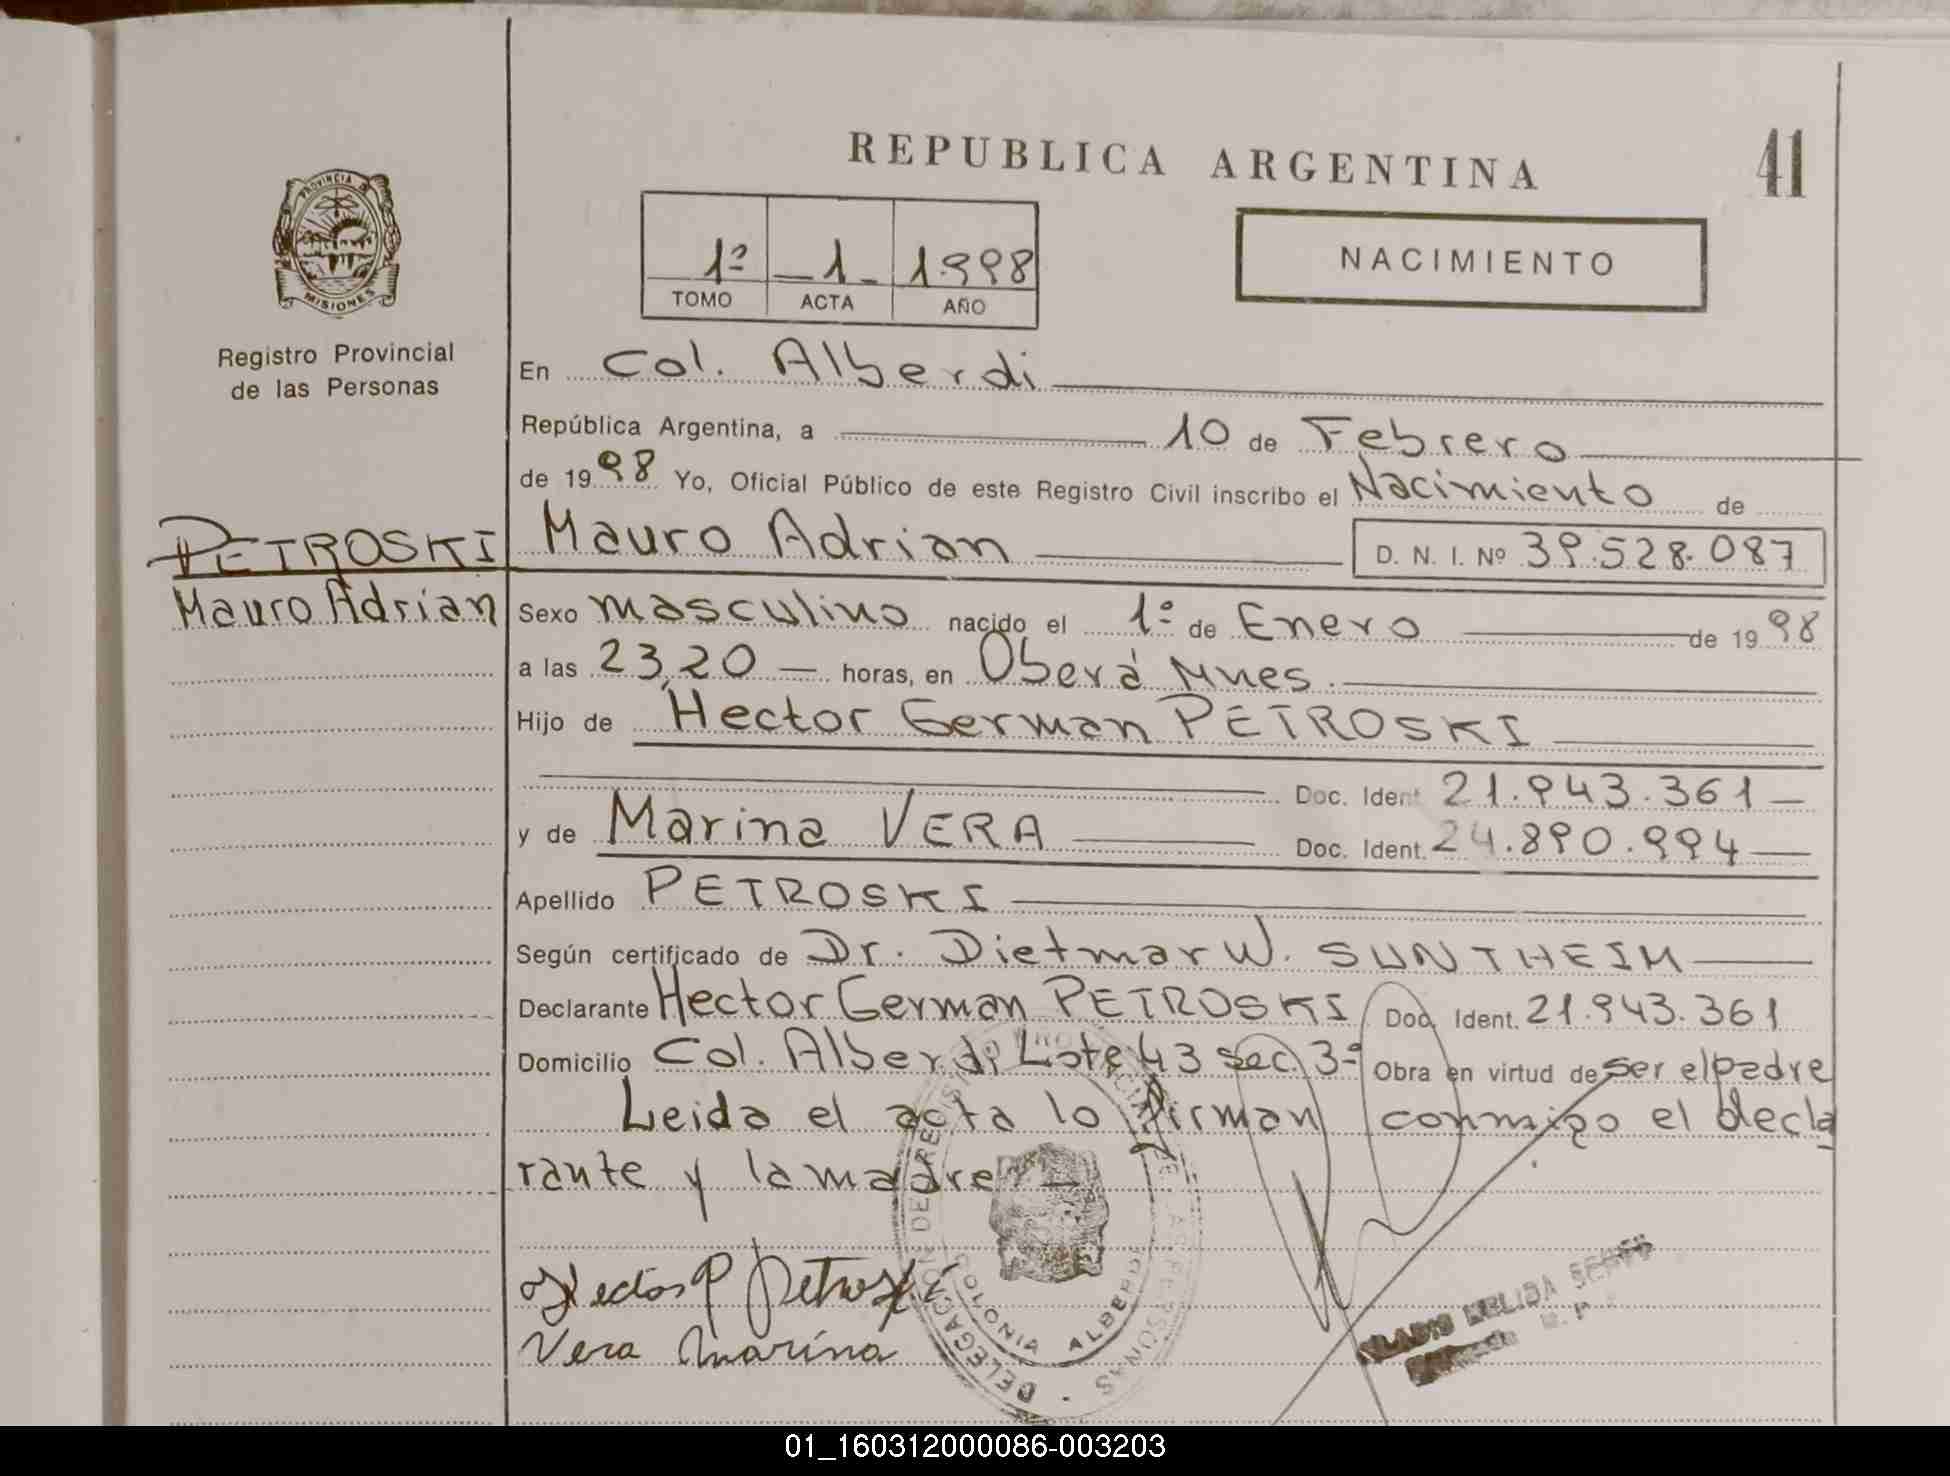 REPUBLICA ARGENTINA
41
PROVINCIA DE MISIONES
Registro Provincial
de las Personas
1º 1 1.998
TOMO ACTA AÑO
NACIMIENTO
En Col. Alberdi
República Argentina, a 10 de Febrero
de 1998 Yo, Oficial Público de este Registro Civil inscribo el Nacimiento de
PETROSKI
Mauro Adrian
Mauro Adrian D. N. I. Nº 39.528.087
Sexo masculino nacido el 1º de Enero de 1998
a las 23,20 horas, en Oberá Mnes.
Hijo de Hector German PETROSKI
Doc. Ident 21.943.361
y de Marina VERA Doc. Ident. 24.890.994
Apellido PETROSKI
Según certificado de Dr. Dietmar W. SUNTHEIM
Declarante Hector German PETROSKI Doc. Ident. 21.943.361
Domicilio Col. Alberdi Lote 43 sec. 3ª Obra en virtud de ser el padre
Leida el acta lo firman conmigo el decla
rante y la madre
Hector G Petroski
Vera Marina
COLONIA ALBERDI
01_160312000086-003203